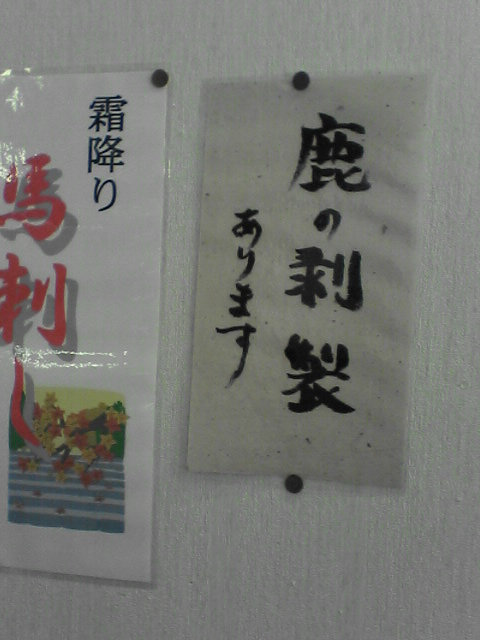 鹿の剥製
あります
霜降り
馬刺し